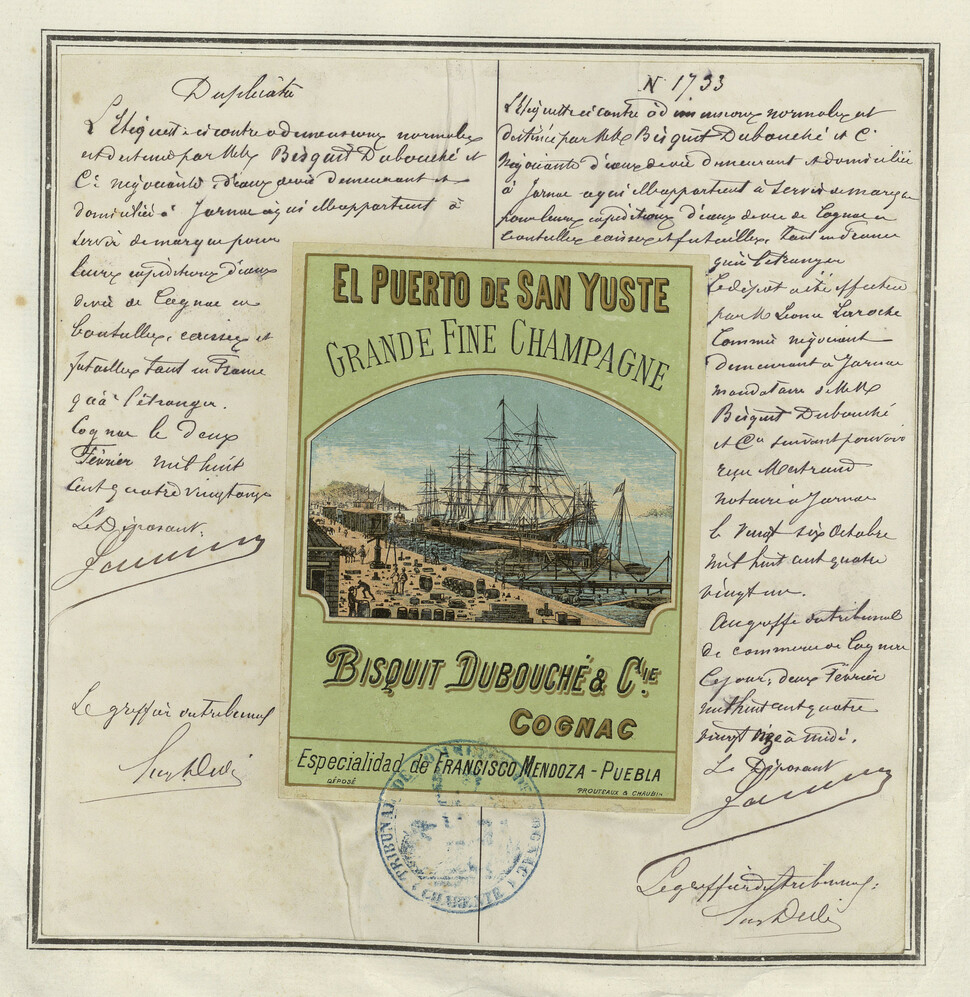 Duplicata
L'étiquette ci contre a dimensions normales
est destinée par MM. Bisquit Dubouché et
Cie négociants d'eaux de vie demeurant et
domiciliés à Jarnac à qui elle appartient à
servir de marque pour
leurs expéditions d'eaux
de vie de Cognac en
bouteilles, caisses et
futailles tant en France
qu'à l'étranger.
Cognac le deux
Février mil huit
cent quatre vingt onze
Le Déposant.
Le greffier du tribunal
N 1733
L'étiquette ci contre à dimensions normales est
destinée par MM. Bisquit Dubouché et Cie
négociants d'eaux de vie demeurant et domiciliés
à Jarnac à qui elle appartient à servir de marque
pour leurs expéditions d'eaux de vie de Cognac en
bouteilles caisses et futailles, tant en France
qu'à l'étranger
Le dépôt a été effectué
par M Léonce Laroche
Commis négociant
demeurant à Jarnac
mandataire de MM
Bisquit Dubouché
et Cie suivant pouvoir
reçu
notaire à Jarnac
le vingt six Octobre
mil huit cent quatre
vingt un.
Au greffe du tribunal
de commerce de Cognac
Ce jour, deux Février
mil huit cent quatre
vingt onze à midi.
Le Déposant
Le greffier du tribunal:
EL PUERTO DE SAN YUSTE
GRANDE FINE CHAMPAGNE
BISQUIT DUBOUCHÉ & CIE.
COGNAC
Especialidad de FRANCISCO MENDOZA - PUEBLA
DÉPOSÉ
PROUTEAUX & CHAUBIN
TRIBUNAL DE COMMERCE DE COGNAC
CHARENTE